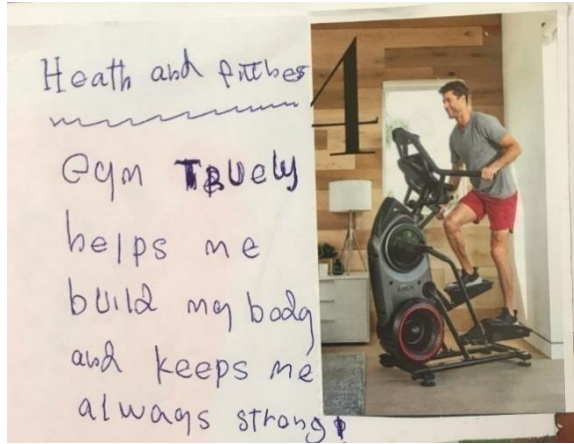 Heath and fittnes
4
Gym TRUely
helps me
build my body
and keeps me
always strong